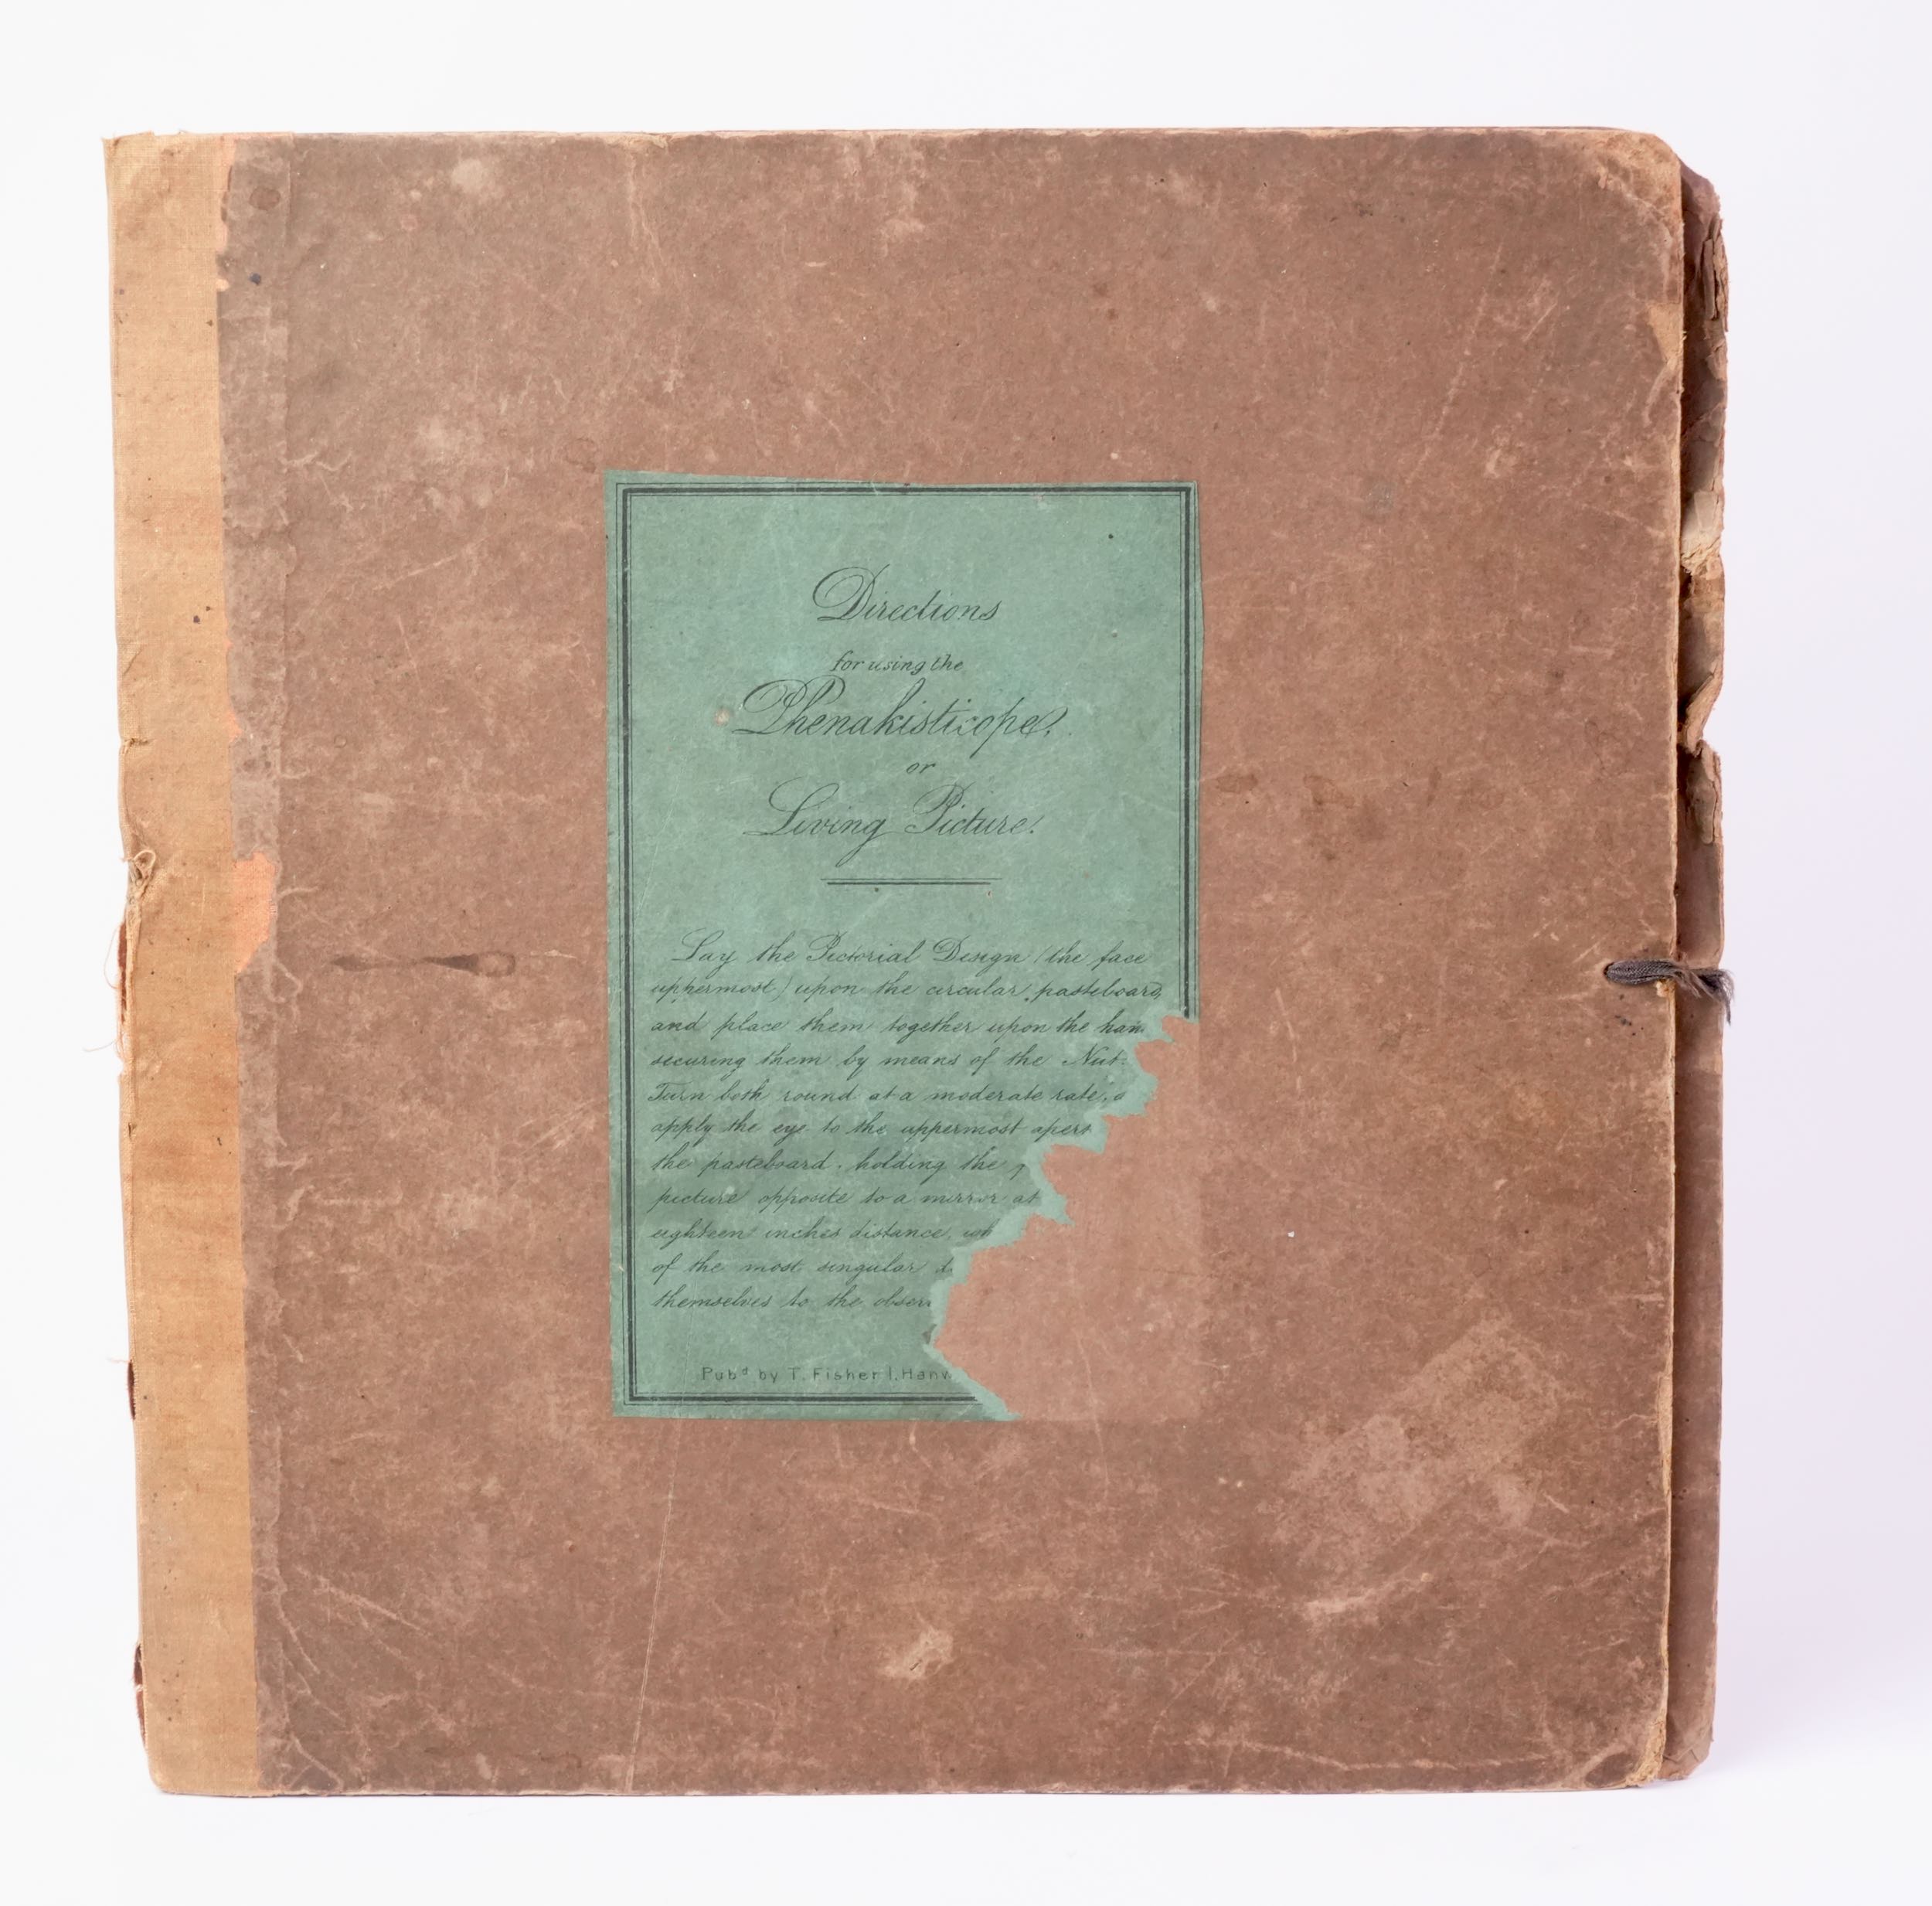 Directions
for using the
Phenakisticope,
or
Living Picture.
Lay the Pictorial Design (the face
uppermost) upon the circular pasteboard,
and place them together upon the han
securing them by means of the Nut.
Turn both round at a moderate rate, a
apply the eye to the uppermost apert
the pasteboard. holding the
picture opposite to a mirror at
eighteen inches distance, wh
of the most singular
themselves to the observ
Pubd by T. Fisher 1, Hanw